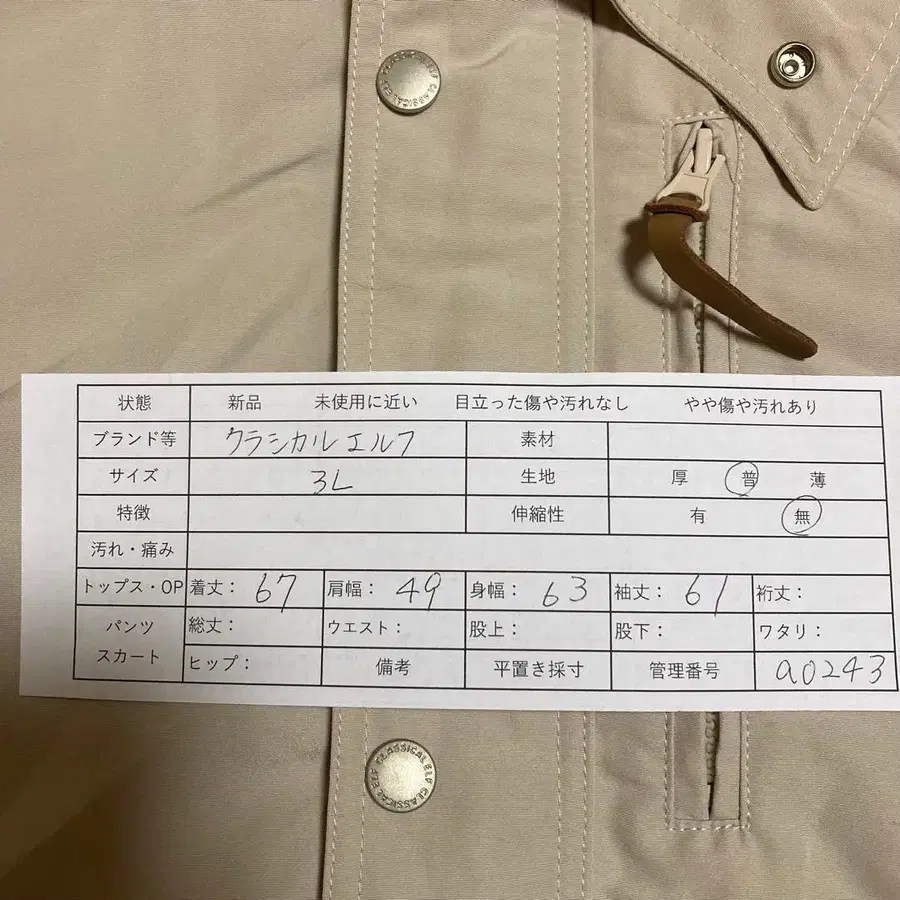 CLASSICAL ELF CLASSICAL ELF
状態 新品 未使用に近い 目立った傷や汚れなし やや傷や汚れあり
ブランド等 クラシカルエルフ 素材
サイズ 3L 生地 厚 普 薄
特徴 伸縮性 有 無
汚れ・痛み
トップス・OP 着丈: 67 肩幅: 49 身幅: 63 袖丈: 61 裄丈:
パンツ スカート 総丈: ウエスト: 股上: 股下: ワタリ:
ヒップ: 備考 平置き採寸 管理番号 a0243
CLASSICAL ELF CLASSICAL ELF